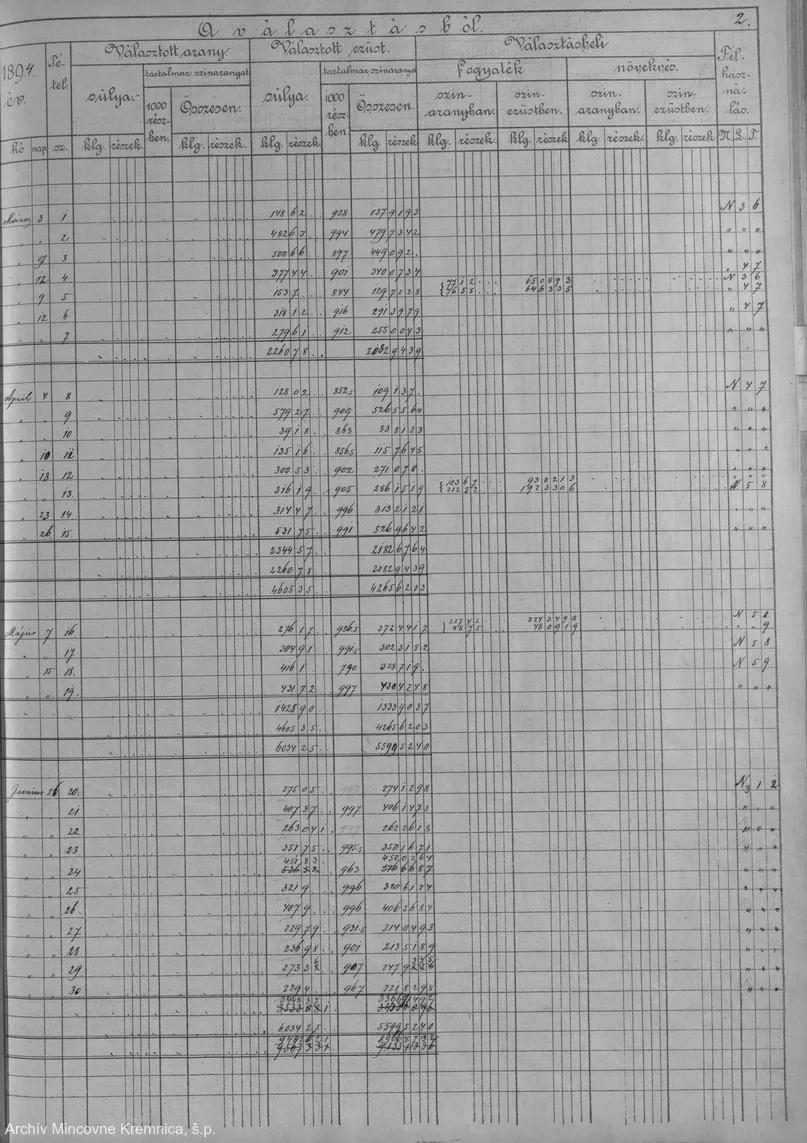 A választásból.
2.
1894. év. Tétel Választott arany Választott ezüst. Választásbeli Felhasználás.
tartalmaz színaranyat tartalmaz színaranyat fogyaték növekvés.
súlya. 1000 részben. Összesen. súlya. 1000 részben Összesen. színaranyban. színezüstben. színaranyban. színezüstben.
hó nap sz. klg. részek. klg. részek. klg. részek. klg. részek. klg. részek klg. részek klg. részek. klg. részek. N. L. T.
März 3 1 14862 928 1379193 N 3 6
" " 2 48267 994 4797342 " " "
" 9 3 50066 897 449092 " " "
" 12 4 37744 901 3400734 " 4 7
" 9 5 1537 844 1297228 7712 650893 N 3 6
9658 646335 " 4 7
" 12 6 31812 916 2913979 " 4 7
" " 7 27961 912 2550043 " " "
226078 20829439
April 4 8 12802 8525 109137 N 4 7
" " 9 57927 909 5265564 " " "
" " 10 3918 863 338123 " " "
" 10 11 13516 8565 1157645 " " "
" 13 12 30053 902 271078 " " "
" " 13. 31619 905 2861519 10367 938213
21252 1923306 N 5 8
" 23 14 31447 996 3132121 " " "
" 26 15 53175 991 5269642 " " "
234457 21826764
226078 20829439
460535 42656203
Május 7 16 27617 9865 2724417 22742 2243498 N 5 8
4875 480919 " " 9
" " 17 30491 9915 3023182 N 5 8
" 15 18. 4161 790 328719 N 5 9
" " 19. 43172 997 4304248 " " "
142890 13339037
460535 42656203
603425 55995240
Junius 26 20. 27505 997 2741298 N 3 1 2
" " 21 40737 997 4061478 " " "
" " 22 263041 997 2622618 " " "
" " 23 35175 9955 3501671 " " "
45183 4520264
" " 24 963 " " "
" " 25 3219 996 3206124 " " "
" " 26. 4079 996 4062684 " " "
" " 27 22979 9315 2140493 " " "
" " 28. 23698 901 2135189 " " "
" " 29 907 " " "
" " 30 2294 967 2218298 " " "
603425 55995240
Archív Mincovne Kremnica, š.p.